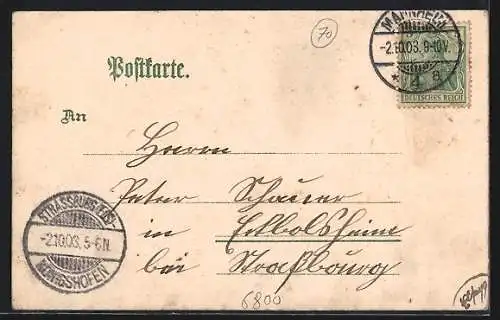 70
MANNHEIM
-2.10.03. 9-10V.
* 4 a
DEUTSCHES REICH
Postkarte.
An
Herrn
Peter Schauer
in Eckbolsheim
bei Straßburg
STRASSBURG (ELS)-
-2.10.03. 5-6N.
KÖNIGSHOFEN
6800